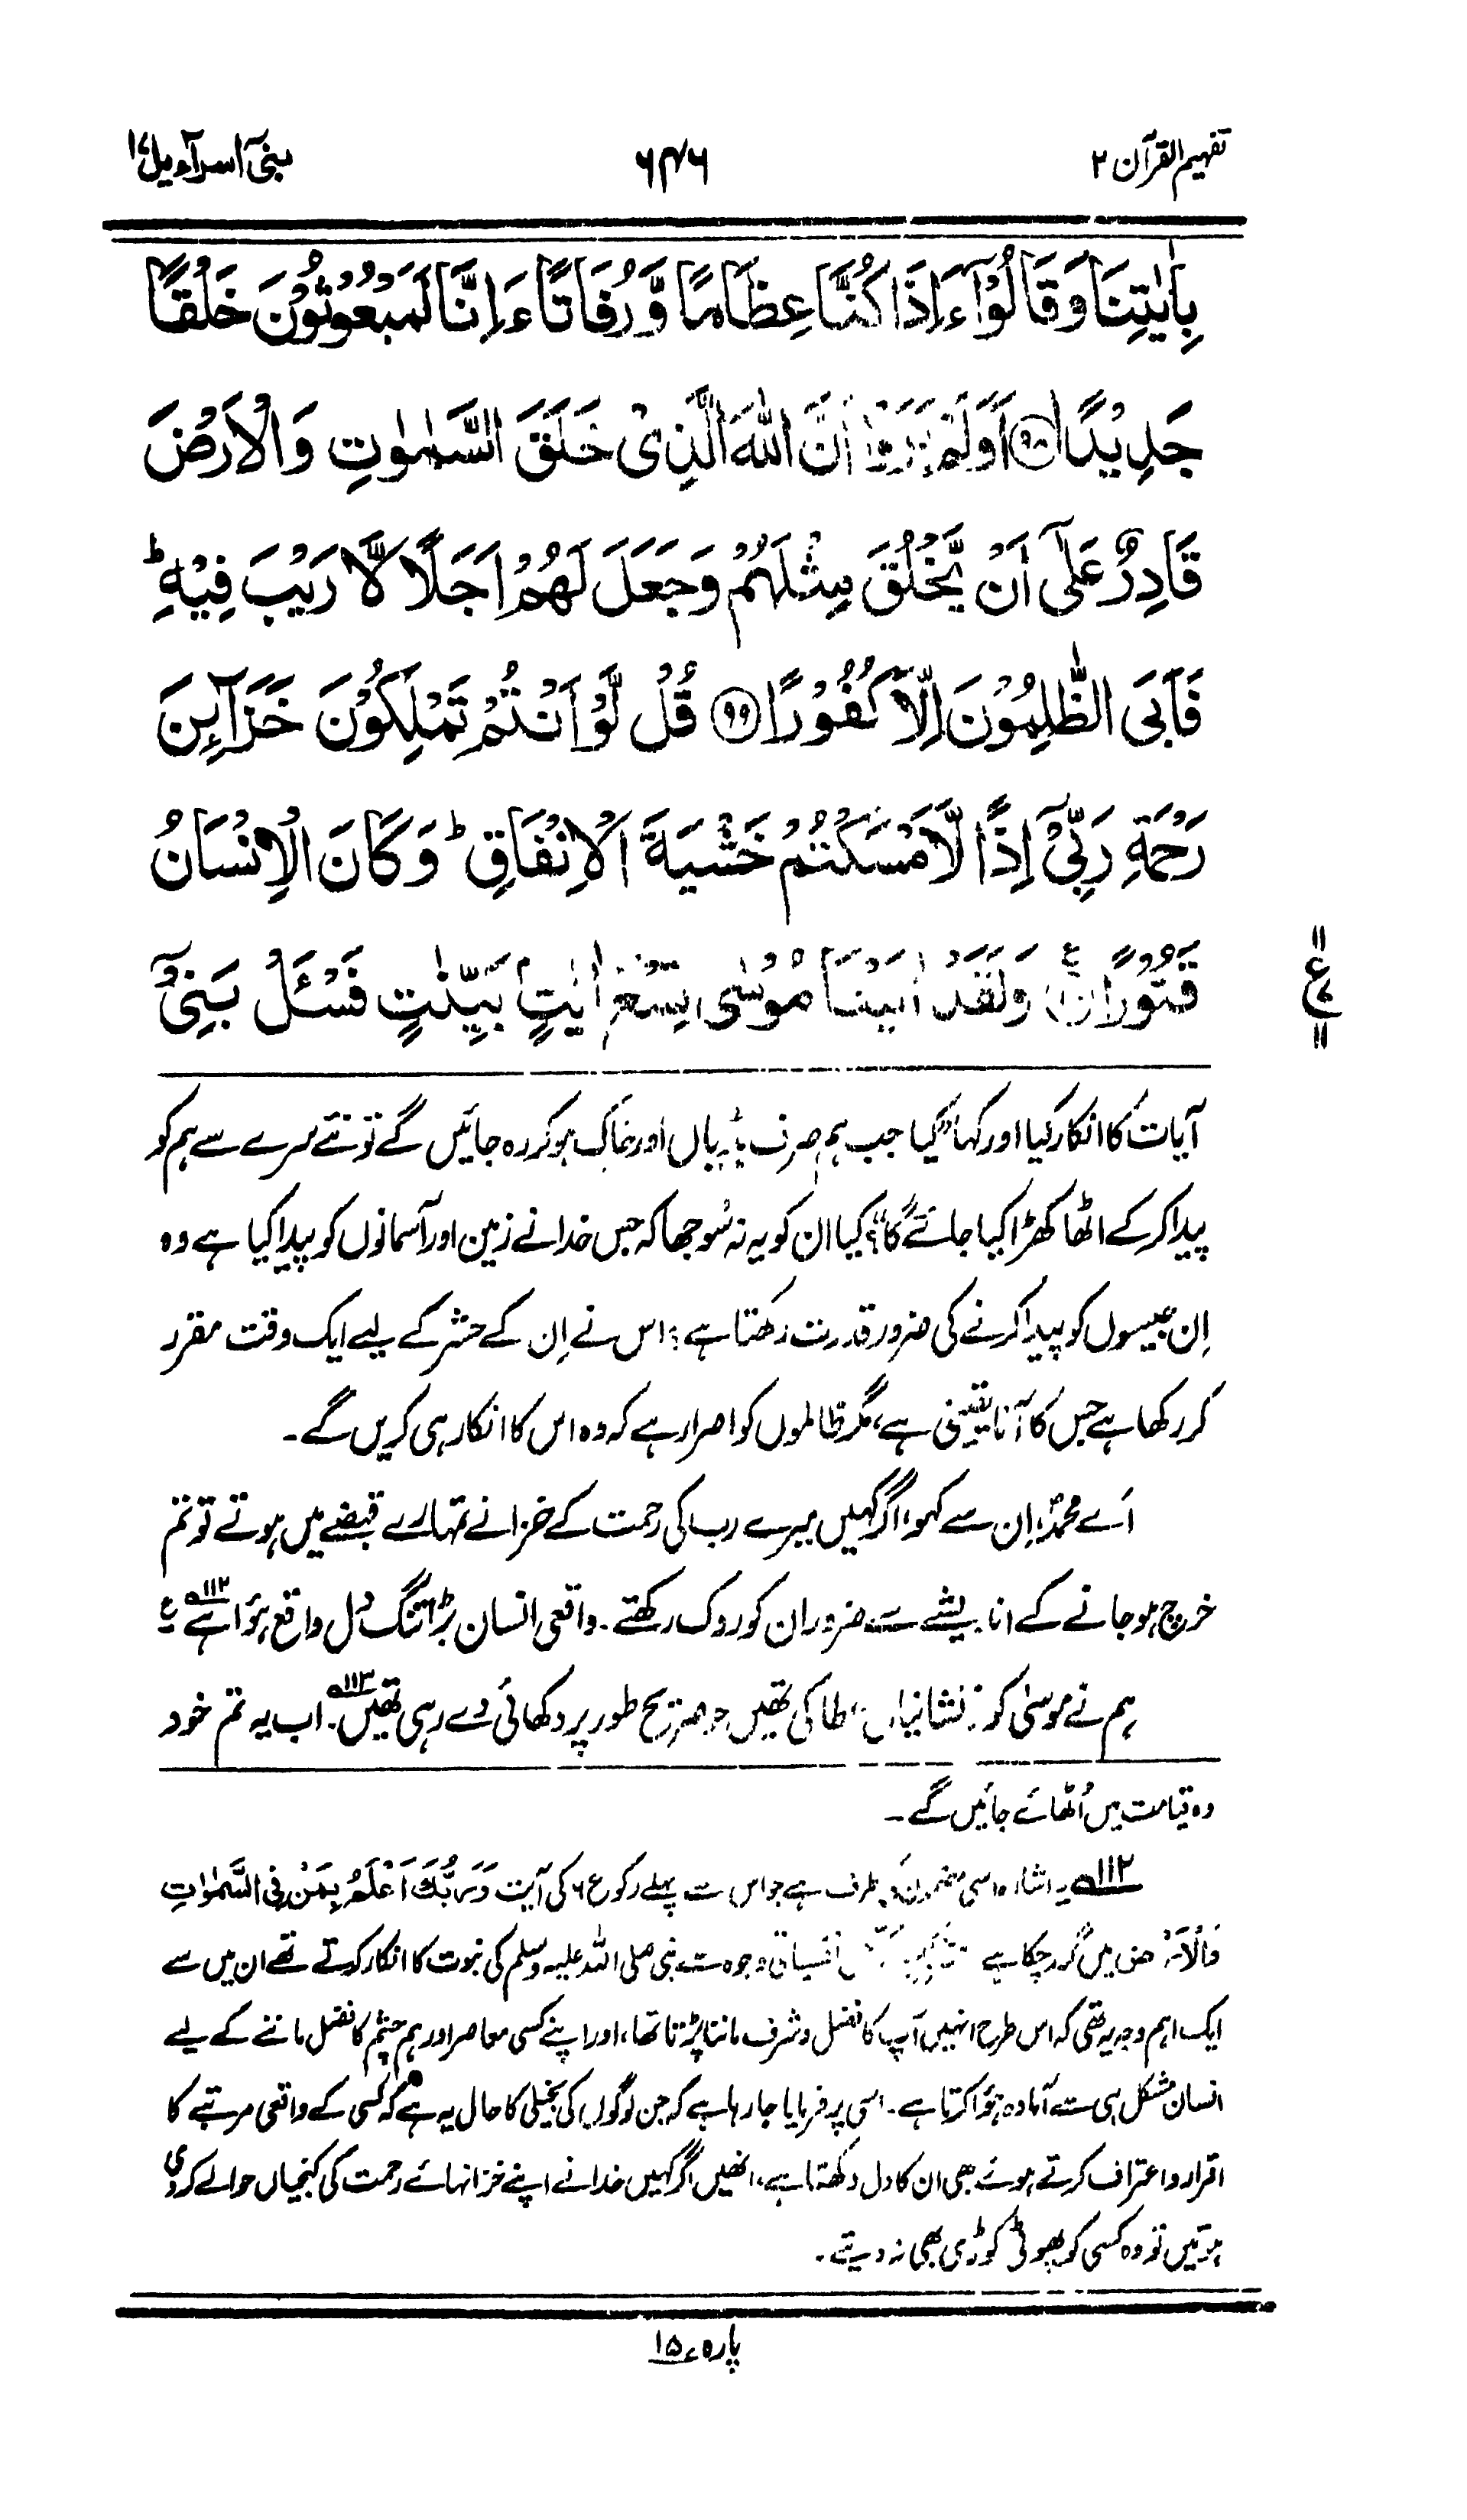 تفہیم القرآن ۲
۶۴۶
بنیٓ اسرآءیل ۱۷
بِاٰیٰتِنَا وَقَالُوْۤا ءَاِذَا كُنَّا عِظَامًا وَّرُفَاتًا ءَاِنَّا لَمَبْعُوْثُوْنَ خَلْقًا
جَدِیْدًا ﴿۹۸﴾ اَوَلَمْ یَرَوْا اَنَّ اللّٰهَ الَّذِیْ خَلَقَ السَّمٰوٰتِ وَالْاَرْضَ
قَادِرٌ عَلٰۤی اَنْ یَّخْلُقَ مِثْلَهُمْ وَجَعَلَ لَهُمْ اَجَلًا لَّا رَیْبَ فِیْهِ ؕ
فَاَبَی الظّٰلِمُوْنَ اِلَّا كُفُوْرًا ﴿۹۹﴾ قُلْ لَّوْ اَنْتُمْ تَمْلِكُوْنَ خَزَآىِٕنَ
رَحْمَةِ رَبِّیْۤ اِذًا لَّاَمْسَكْتُمْ خَشْیَةَ الْاِنْفَاقِ ؕ وَكَانَ الْاِنْسَانُ
قَتُوْرًا ع وَلَقَدْ اٰتَیْنَا مُوْسٰی تِسْعَ اٰیٰتٍ بَیِّنٰتٍ فَسْـَٔلْ بَنِیْۤ
۱۱ ع ۱۱
آیات کا انکار کیا اور کہا "کیا جب ہم صرف ہڈیاں اور خاک ہو کر رہ جائیں گے تو نئے سرے سے ہم کو
پیدا کر کے اٹھا کھڑا کیا جائے گا"؟ کیا ان کو یہ نہ سُوجھا کہ جس خدا نے زمین اور آسمانوں کو پیدا کیا ہے وہ
اِن جیسوں کو پیدا کرنے کی ضرور قدرت رکھتا ہے؟ اس نے اِن کے حشر کے لیے ایک وقت مقرر
کر رکھا ہے جس کا آنا یقینی ہے، مگر ظالموں کو اصرار ہے کہ وہ اس کا انکار ہی کریں گے۔
اَے محمدؐ، اِن سے کہو، اگر کہیں میرے رب کی رحمت کے خزانے تمہارے قبضے میں ہوتے تو تم
خرچ ہو جانے کے اندیشے سے ضرور ان کو روک رکھتے۔ واقعی انسان بڑا تنگ دل واقع ہوٗا ہے ۱۱۲ ع
ہم نے موسیٰ کو نشانیاں عطا کی تھیں جو صریح طور پر دکھائی دے رہی تھیں ۱۱۳۔ اب یہ تم خود
وہ قیامت میں اُٹھائے جائیں گے۔
۱۱۲ یہ اشارہ اسی مضمون کی طرف ہے جو اس سے پہلے رکوع ۶ کی آیت وَرَبُّكَ اَعْلَمُ بِمَنْ فِی السَّمٰوٰتِ
وَالْاَرْضِ میں گزر چکا ہے نفسیاتی وجوہ سے نبی صلی اللہ علیہ وسلم کی نبوت کا انکار کرتے تھے ان میں سے
ایک اہم وجہ یہ تھی کہ اس طرح انہیں آپ کا فضل و شرف ماننا پڑتا تھا، اور اپنے کسی معاصر اور ہم چشم کا فضل ماننے کے لیے
انسان مشکل ہی سے آمادہ ہوٗا کرتا ہے۔ اسی پر فرمایا جا رہا ہے کہ جن لوگوں کی بخیلی کا حال یہ ہے کہ کسی کے واقعی مرتبے کا
اقرار و اعتراف کرتے ہوئے بھی ان کا دل دکھتا ہے، انھیں اگر کہیں خدا نے اپنے خزانہائے رحمت کی کنجیاں حوالے کر دی
ہوتیں تو وہ کسی کو پھوٹی کوڑی بھی نہ دیتے۔
پارہ ۱۵